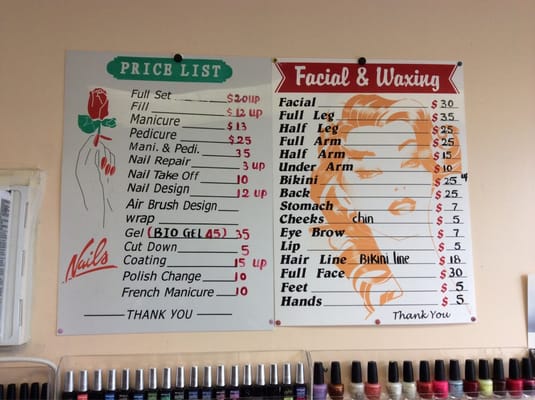 PRICE LIST
Full Set $20 up
Fill $12 up
Manicure $13
Pedicure $25
Mani. & Pedi. 35
Nail Repair 3 up
Nail Take Off 10
Nail Design 12 up
Air Brush Design
wrap
Gel (BIO GEL 45) 35
Cut Down 5
Coating 15 up
Polish Change 10
French Manicure 10
Nails
THANK YOU
Facial & Waxing
Facial $30
Full Leg $35
Half Leg $25
Full Arm $25
Half Arm $15
Under Arm $10
Bikini $25 up
Back $25
Stomach $7
Cheeks chin $5
Eye Brow $7
Lip $5
Hair Line Bikini line $18
Full Face $30
Feet $5
Hands $5
Thank You